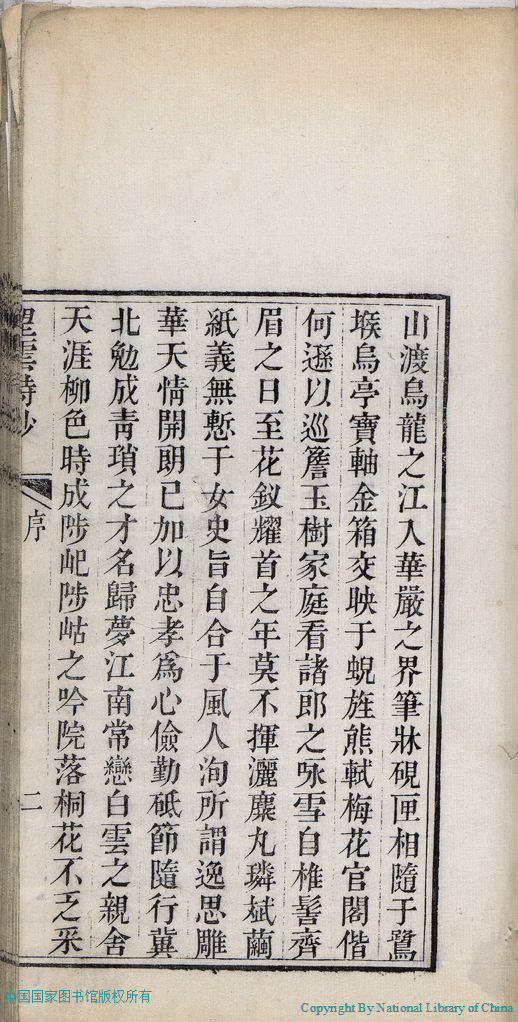 山渡烏龍之江入華嚴之界筆牀硯匣相隨于鷺
堠烏亭寶軸金箱交映于蜺旌熊軾梅花官閣偕
何遜以巡簷玉樹家庭看諸郎之咏雪自椎髻齊
眉之日至花釵耀首之年莫不揮灑麋丸璘斌繭
紙義無慙于女史旨自合于風人洵所謂逸思雕
華天情開朗已加以忠孝爲心儉勤砥節隨行冀
北勉成靑瑣之才名歸夢江南常戀白雲之親舍
天涯柳色時成陟屺陟岵之吟院落桐花不乏采
望雲詩鈔
序
二
中国国家图书馆版权所有
Copyright By National Library of China